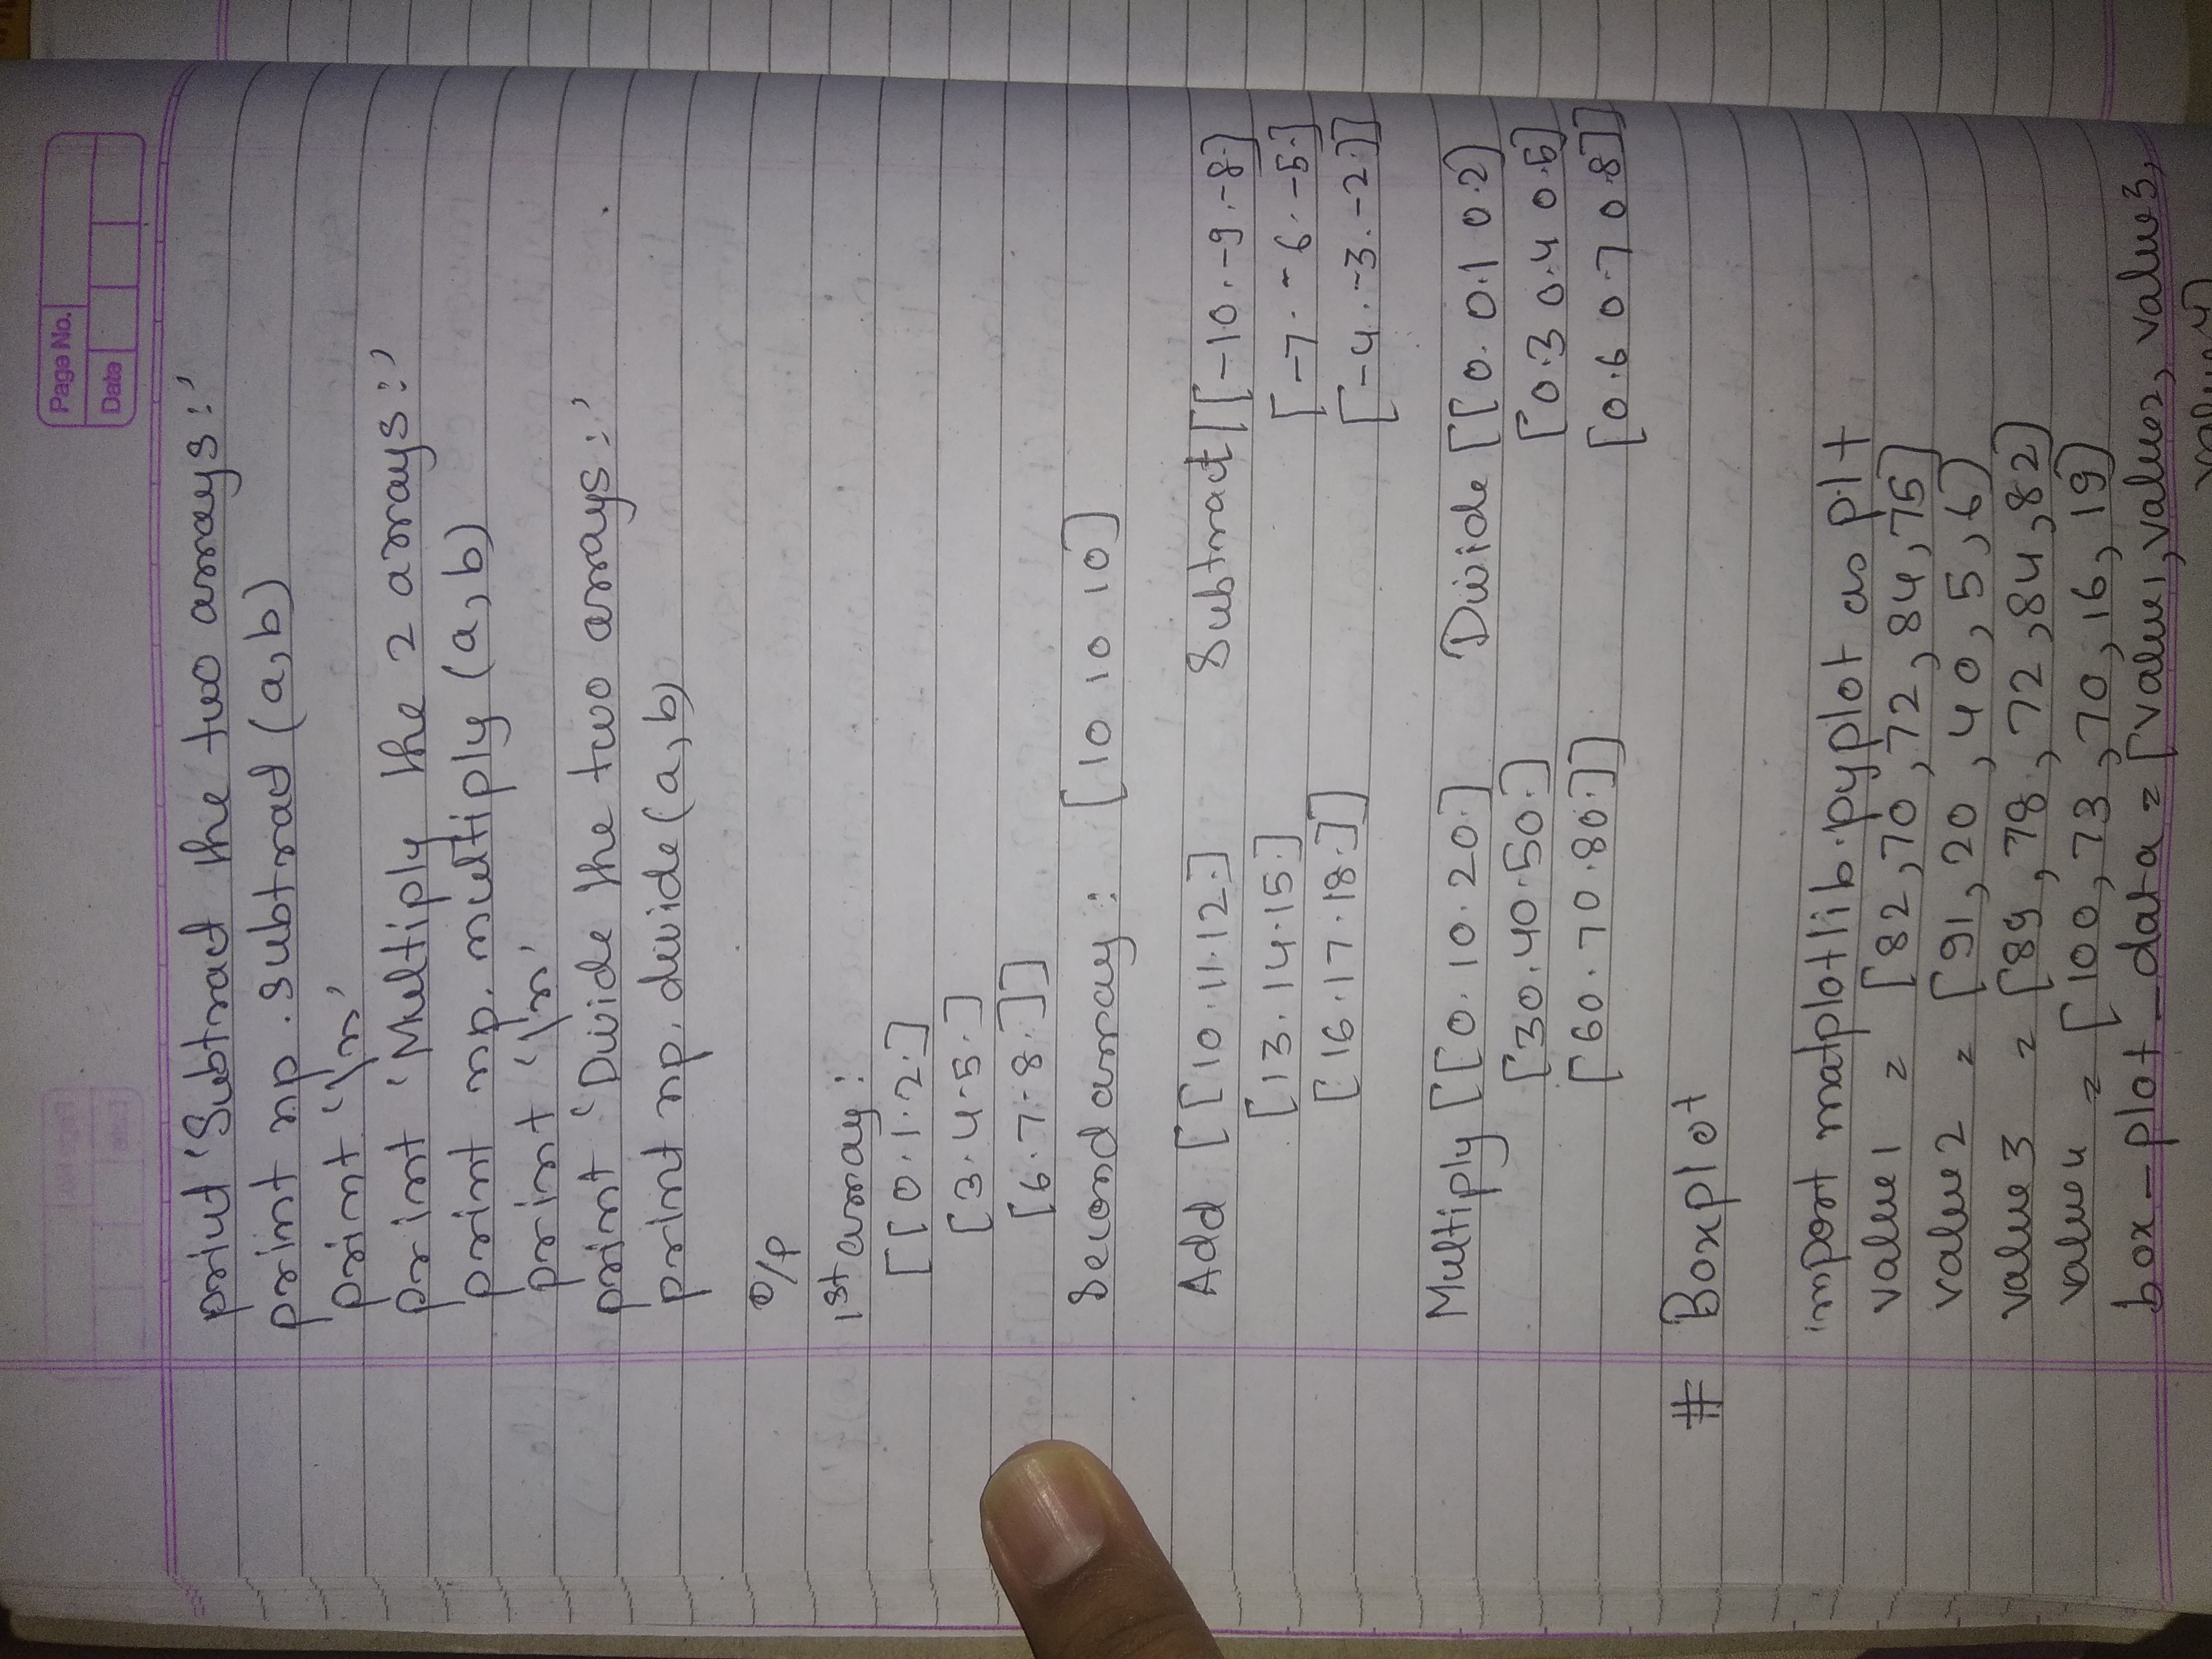 Page No.
Date
print 'Subtract the two arrays:'
print np.subtract (a,b)
print '\n'
print 'Multiply the 2 arrays:'
print np.multiply (a,b)
print '\n'
print 'Divide the two arrays:'
print np.divide (a,b)
O/P
1st array:
[[0.1.2.]
[3.4.5.]
[6.7.8.]]
Second array: [10 10 10]
Add [[10.11.12.] Subtract [[-10.-9.-8.]
[13.14.15.] [-7.-6.-5.]
[16.17.18.]] [-4.-3.-2.]]
Multiply [[0.10.20.] Divide [[0. 0.1 0.2]
[30.40.50.] [0.3 0.4 0.5]
[60.70.80.]] [0.6 0.7 0.8]]
# Boxplot
import matplotlib.pyplot as plt
value1 = [82,70,72,84,75]
value2 = [91,20,40,5,6]
value3 = [89,78,72,84,82]
value4 = [100,73,70,16,19]
box-plot_data = [value1,value2,value3,
value4]